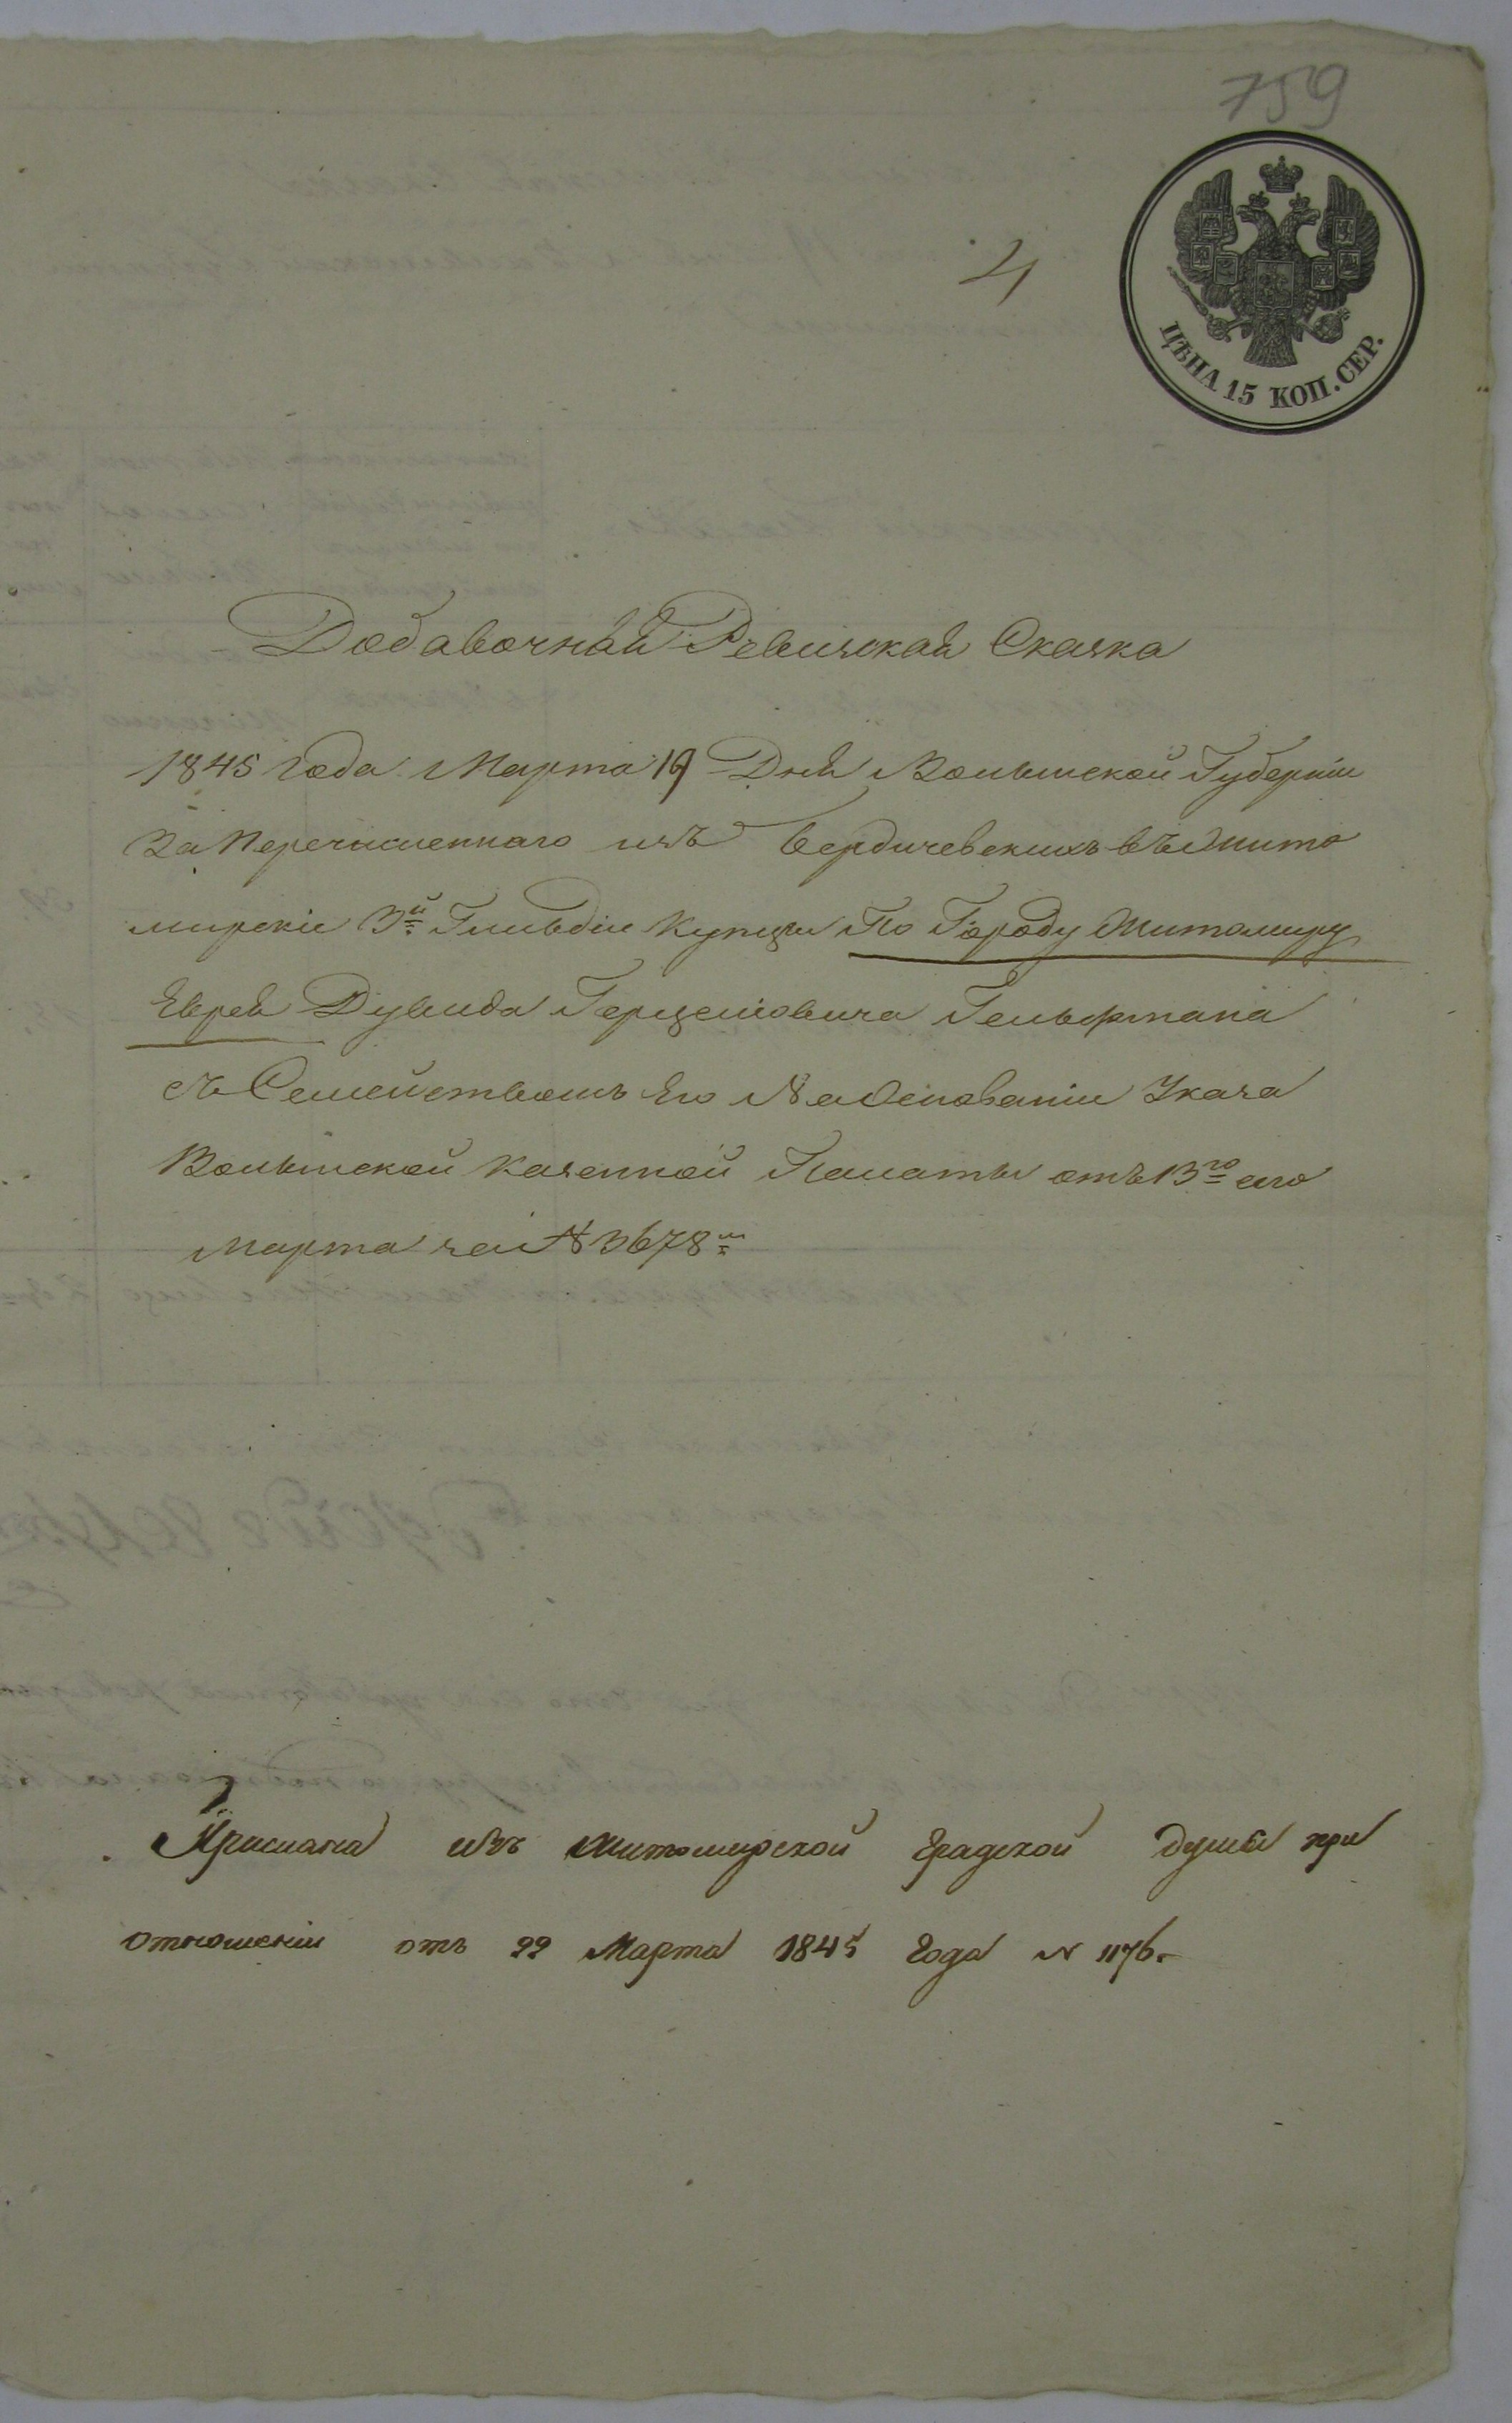 759
4
ЦѢНА 15 КОП. СЕР.
Добавочная Ревизская Сказка
1845 Года Марта 19 Дня Волынской Губерніи
За Перечисленнаго изъ Бердичевскихъ въ Жито
мирскіе 3й Гильдіи Купцы По Городу Житомиру
Еврея Дувида Герцеліовича Гельфмана
съ Семействомъ Его На Основаніи Указа
Волынской Казенной Палаты отъ 13го сего
Марта за № 3678м
Прислана изъ Житомирской Градской думы при
отношеніи отъ 22 Марта 1845 Года № 1176.